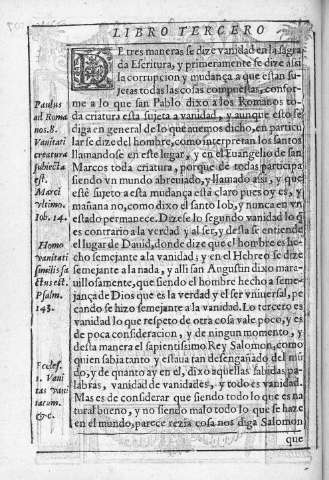 LIBRO TERCERO
DE tres maneras se dize vanidad en la sagra
da Escritura, y primeramente se dize assi
la corrupcion y mudança a que estan su-
jetas todas las cosas compuestas, confor-
me a lo que san Pablo dixo a los Romanos to-
da criatura esta sujeta a vanidad, y aunque esto se
diga en general de lo que auemos dicho, en particu
lar se dize del hombre, como interpretan los santos
llamandose en este lugar, y en el Euangelio de san
Marcos toda criatura, porque de todas participa
siendo vn mundo abreuiado, y llamado assi, y que
estè sujeto a esta mudança està claro pues oy es, y
mañana no, como dixo el santo Iob, y nunca en vn
estado permanece. Dizese lo segundo vanidad lo q̃
es contrario a la verdad y al ser, y desta se entiende
el lugar de Dauid, donde dize que el hombre es he-
cho semejante a la vanidad; y en el Hebreo se dize
semejante a la nada, y alli san Augustin dixo mara-
uillosamente, que siendo el hombre hecho a seme-
jança de Dios que es la verdad y el ser vniuersal, pe
cando se hizo semejante a la vanidad. Lo tercero es
vanidad lo que respeto de otra cosa vale poco, y es
de poca consideracion, y de ningun momento, y
desta manera el sapientissimo Rey Salomon, como
quien sabia tanto y estaua tan desengañado del mũ
do, y de quanto ay en el, dixo aquellas sabidas pa-
labras, vanidad de vanidades, y todo es vanidad.
Mas es de considerar que siendo todo lo que es na
tural bueno, y no siendo malo todo lo que se haze
en el mundo, parece rezia cosa nos diga Salomon
que
Paulus
ad Roma
nos. 8.
Vanitati
creatura
subiecta
est.
Marci
vltimo.
Iob. 14.
Homo
vanitati
similis fa
ctus est.
Psalm.
143.
Eccles.
1. Vani
tas vani
tatum.
&c.